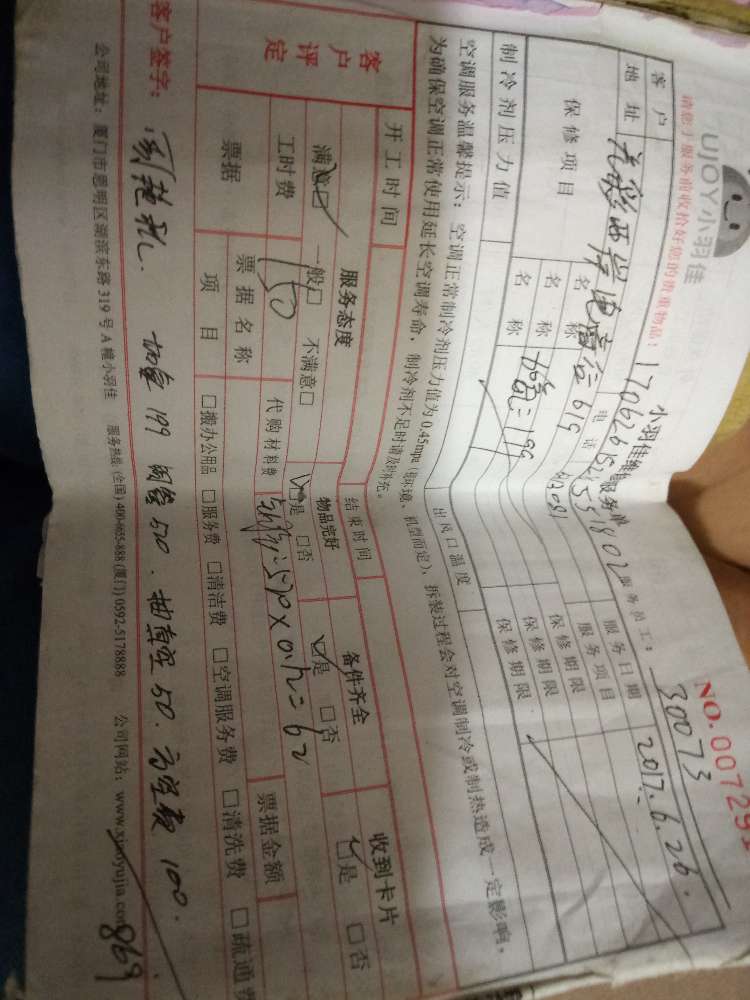 UJOY小羽佳
小羽佳 服务单
NO.007291
请您于服务前收拾好您的贵重物品!
170626152551802
服务员工: 30073
客户地址
光彩西岸 619
电话
服务日期 2017.6.26.
服务项目
保修项目 名称 保修期限
名称 保修期限
名称 =199 保修期限
制冷剂压力值 出风口温度
空调服务温馨提示:空调正常制冷剂压力值为0.45mpa(视环境、机型而定),拆装过程会对空调制冷或制热造成一定影响,
为确保空调正常使用延长空调寿命,制冷剂不足时请及时补充。
开工时间 结束时间
客户评定 服务态度 物品完好 备件齐全 收到卡片
满意□ 一般□ 不满意□ □是 □否 □是 □否 □是 □否
工时费 150 代购材料费 520×0.12=62
票据 票据名称 票据金额
项目 □搬办公用品 □服务费 □清洁费 □空调服务费 □清洗费 □疏通费
客户签字:
加氟199 铜管520.抽真空50.高空费100.
869
公司地址:厦门市思明区湖滨东路319号A幢小羽佳 服务热线:(全国)400-6655-888 (厦门)0592-5178888 公司网站:www.xiaoyujia.com